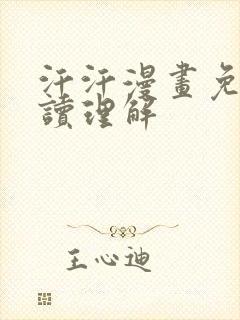 汗汗漫畫免
讀理解
王心迪